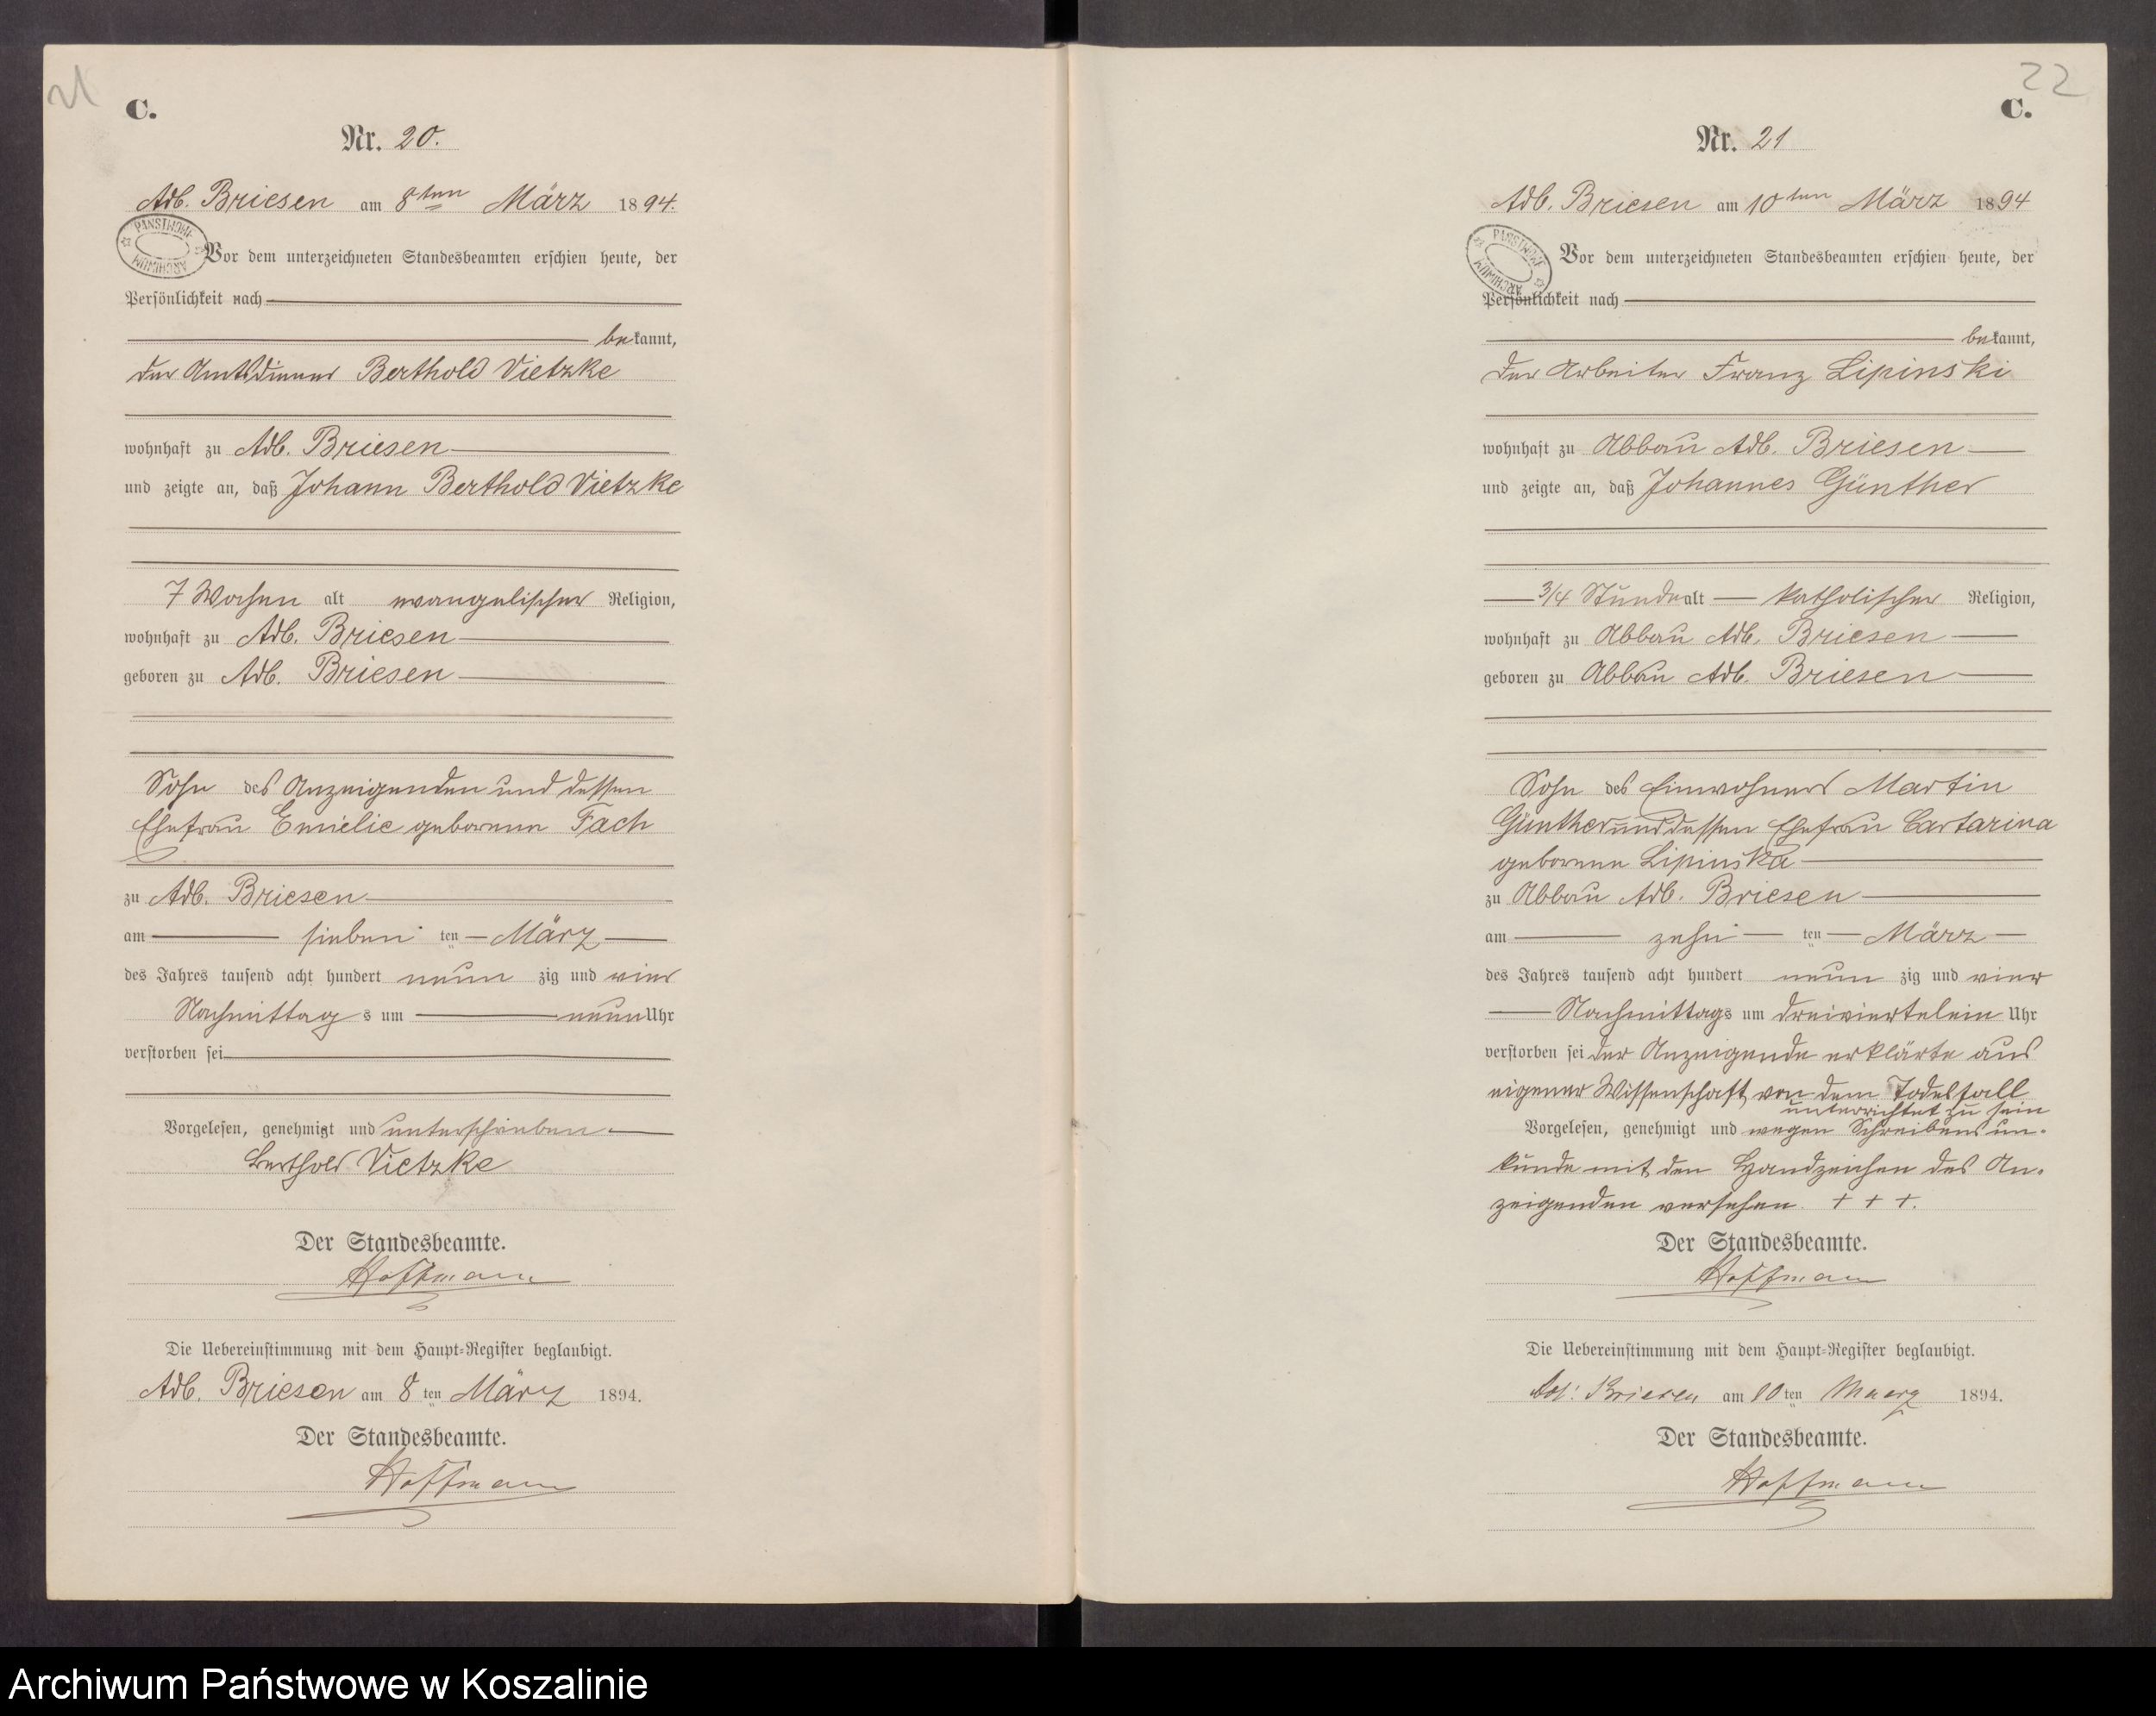 21
C.
Nr. 20.
Adl. Briesen am 8ten März 1894.
PAŃSTWOWE
ARCHIWUM
Vor dem unterzeichneten Standesbeamten erschien heute, der
Persönlichkeit nach
bekannt,
der Amtsdiener Berthold Vietzke
wohnhaft zu Adl. Briesen
und zeigte an, daß Johann Berthold Vietzke
7 Wochen alt evangelischer Religion,
wohnhaft zu Adl. Briesen
geboren zu Adl. Briesen
Sohn des Anzeigenden und dessen
Ehefrau Emielie geborenen Fach
zu Adl. Briesen
am sieben ten März
des Jahres tausend acht hundert neun zig und vier
Nachmittag s um neun Uhr
verstorben sei
Vorgelesen, genehmigt und unterschrieben
Berthold Vietzke
Der Standesbeamte.
Hoffmann
Die Uebereinstimmung mit dem Haupt-Register beglaubigt.
Adl. Briesen am 8 ten März 1894.
Der Standesbeamte.
Hoffmann
22
C.
Nr. 21
Adl. Briesen am 10ten März 1894
PAŃSTWOWE
ARCHIWUM
Vor dem unterzeichneten Standesbeamten erschien heute, der
Persönlichkeit nach
bekannt,
der Arbeiter Franz Lipinski
wohnhaft zu Abbau Adl. Briesen
und zeigte an, daß Johannes Günther
3/4 Stunde alt katholischer Religion,
wohnhaft zu Abbau Adl. Briesen
geboren zu Abbau Adl. Briesen
Sohn des Einwohners Martin
Günther und dessen Ehefrau Cartarina
geborenen Lipinska
zu Abbau Adl. Briesen
am zehn ten März
des Jahres tausend acht hundert neun zig und vier
Nachmittags um dreiviertelein Uhr
verstorben sei der Anzeigende erklärte aus
eigener Wissenschaft von dem Todesfall
unterrichtet zu sein
Vorgelesen, genehmigt und wegen Schreibens un-
kunde mit den Handzeichen des An-
zeigenden versehen. + + +.
Der Standesbeamte.
Hoffmann
Die Uebereinstimmung mit dem Haupt-Register beglaubigt.
Adl. Briesen am 10 ten Maerz 1894.
Der Standesbeamte.
Hoffmann
Archiwum Państwowe w Koszalinie